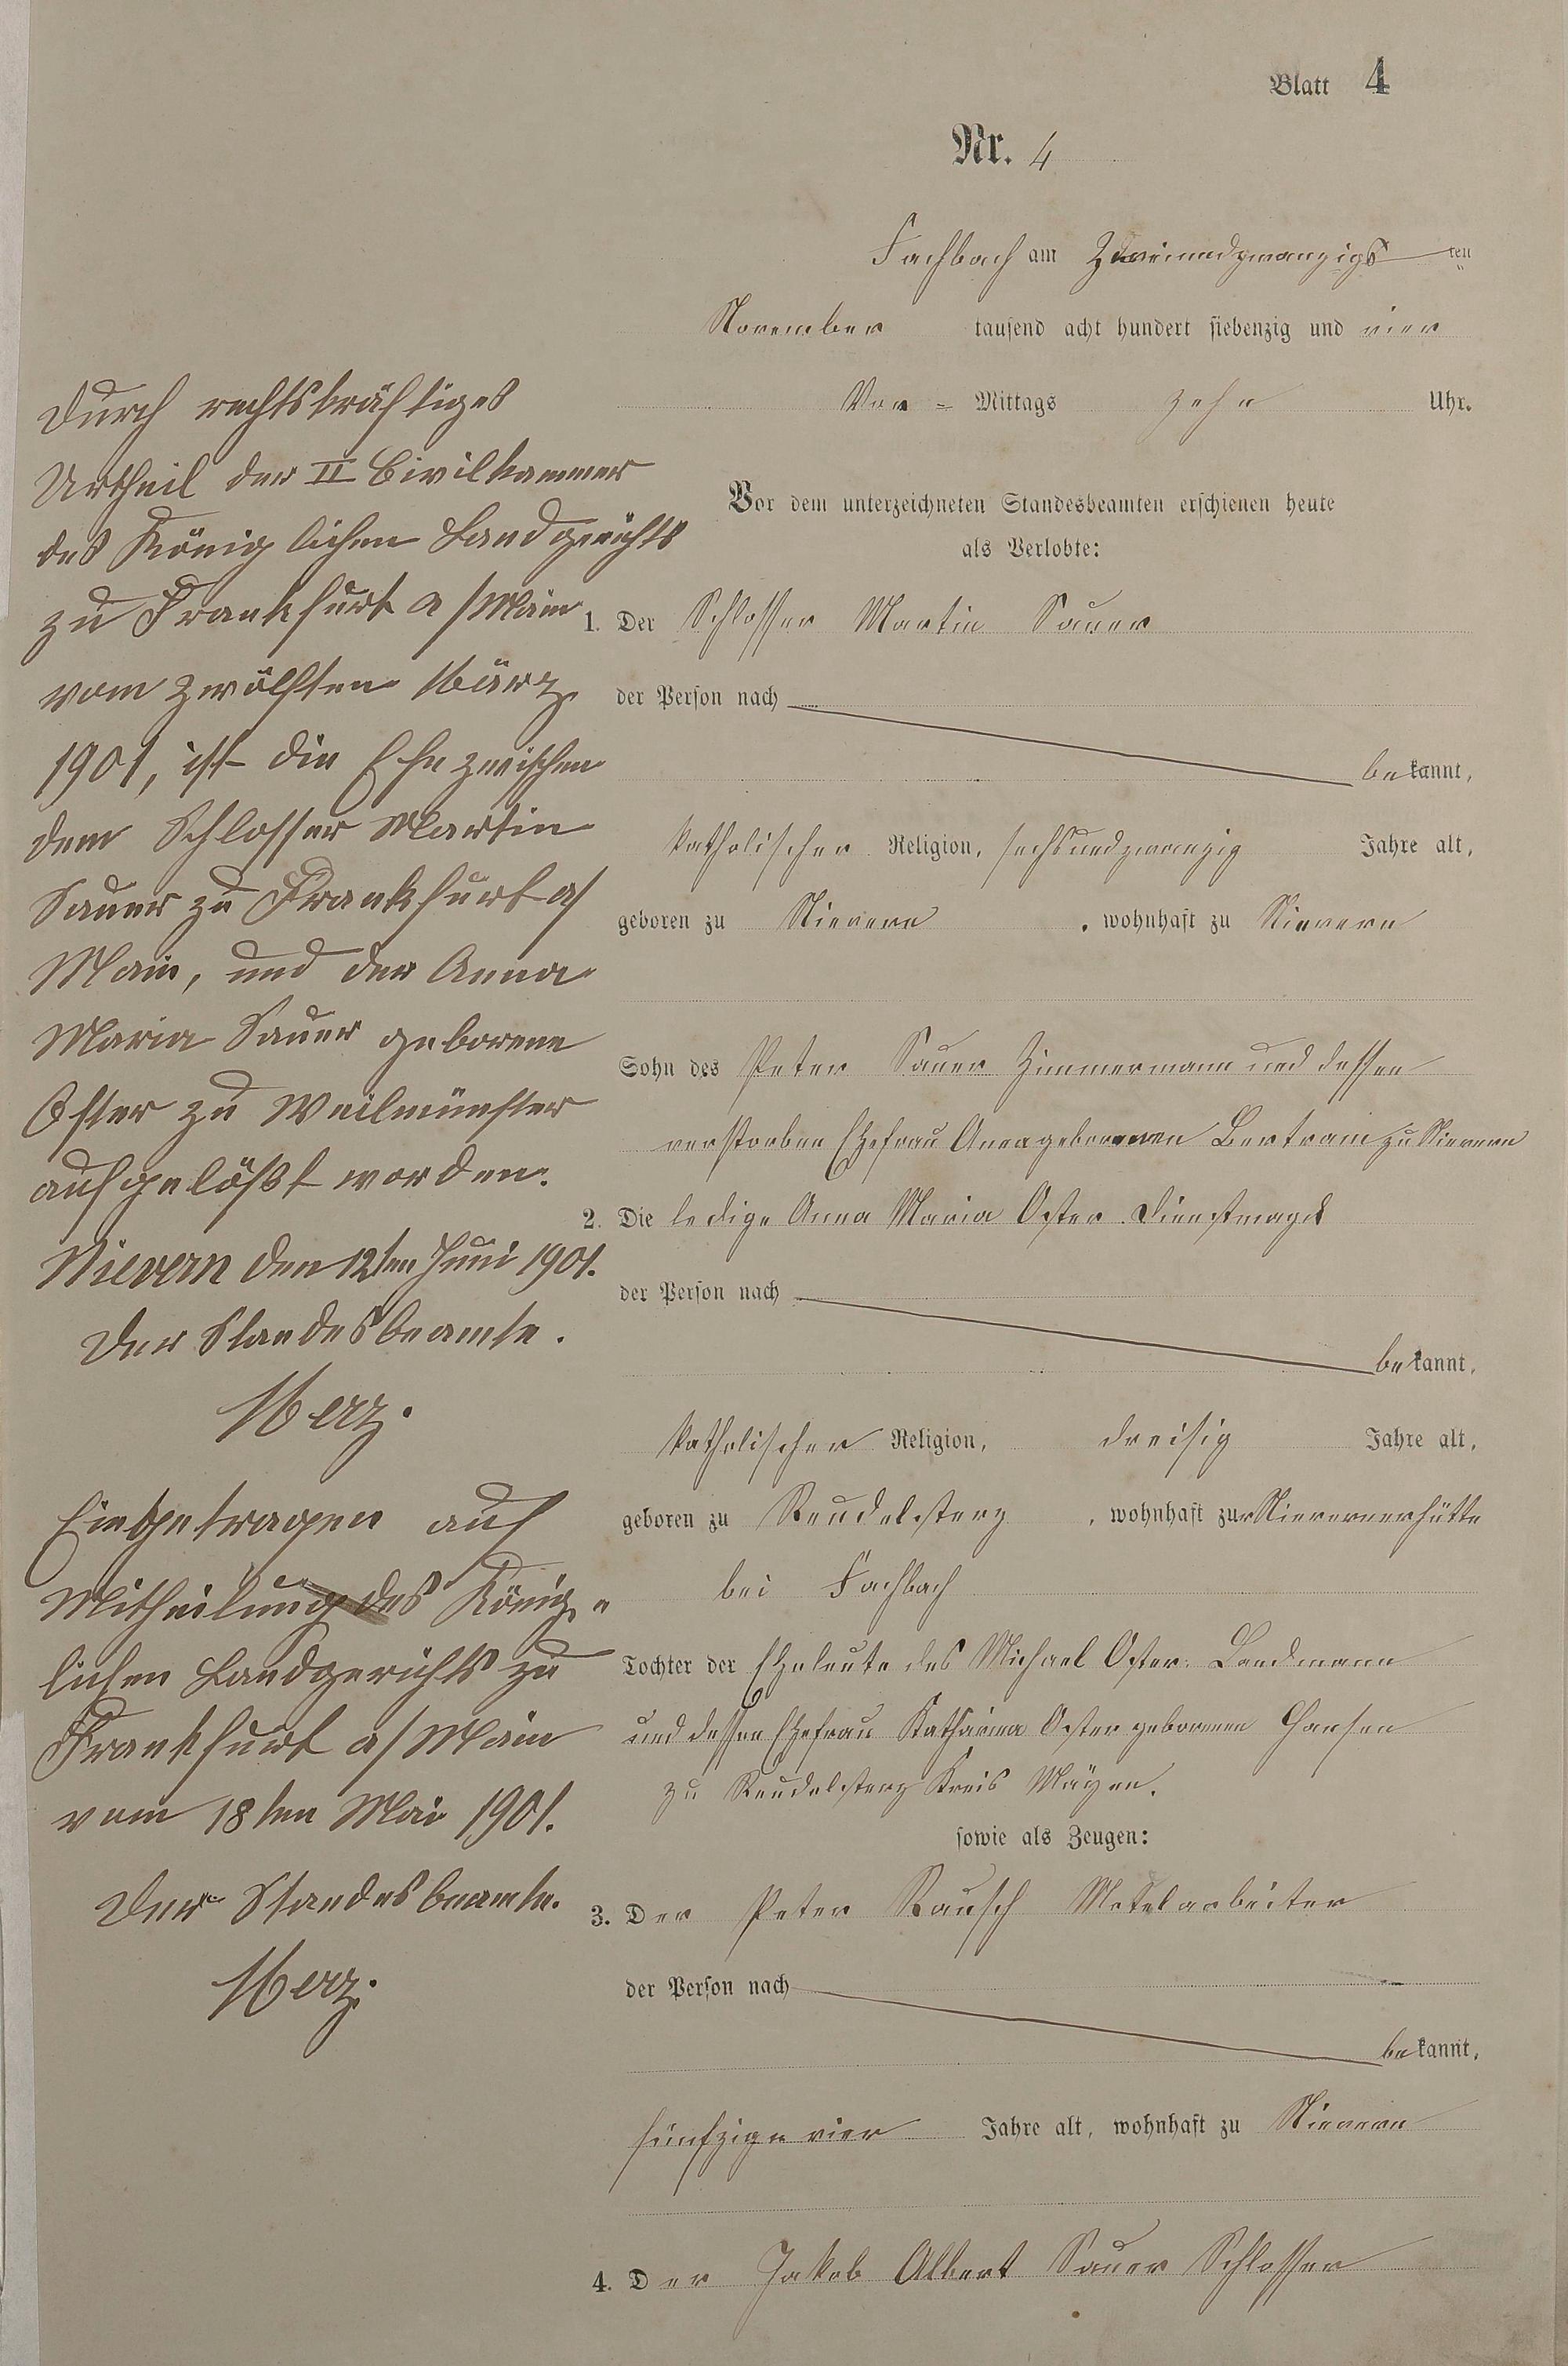 Blatt 4
Nr. 4
Fachbach am Zweiundzwanzigs ten
November tausend acht hundert siebenzig und vier
Vor = Mittags zehn Uhr.
Vor dem unterzeichneten Standesbeamten erschienen heute
als Verlobte:
1. Der Schlosser Martin Sauer
der Person nach
bekannt,
katholischer Religion, sechsundzwanzig Jahre alt,
geboren zu Nievern, wohnhaft zu Nievern
Sohn des Peter Sauer Zimmermann und dessen
verstorben Ehefrau Anna geborenen Bertram zu Nievern
2. Die ledige Anna Maria Oster Dienstmagd
der Person nach
bekannt,
katholischer Religion, dreisig Jahre alt,
geboren zu Reudelsterz, wohnhaft zur Nievernerhütte
bei Fachbach
Tochter der Eheleute des Michael Oster Landmann
und dessen Ehefrau Katharina Oster geborenen Hansen
zu Reudelsterz Kreis Mayen.
sowie als Zeugen:
3. Der Peter Rausch Metelarbeiter
der Person nach
bekannt,
fünfzig vier Jahre alt, wohnhaft zu Nievern
4. Der Jakob Albert Sauer Schlosser
Durch rechtskräftiges
Urtheil der II Civilkammer
des Königlichen Landgerichts
zu Frankfurt a/Main
vom zwölften März
1901, ist die Ehe zwischen
dem Schlosser Martin
Sauer zu Frankfurt a/
Main, und der Anna
Maria Sauer geborene
Oster zu Weilmünster
aufgelößt worden.
Nievern den 12ten Juni 1901.
Der Standesbeamte.
Merz.
Eingetragen auf
Mitheilung des König=
lichen Landgerichts zu
Frankfurt a/Main
vom 18ten Mai 1901.
Der Standesbeamte.
Merz.